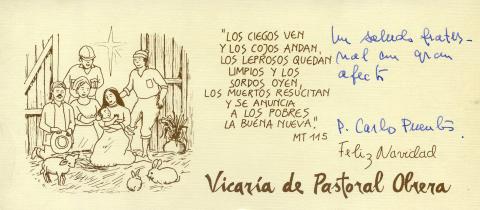 "LOS CIEGOS VEN
Y LOS COJOS ANDAN,
LOS LEPROSOS QUEDAN
LIMPIOS Y LOS
SORDOS OYEN,
LOS MUERTOS RESUCITAN
Y SE ANUNCIA
A LOS POBRES
LA BUENA NUEVA."
MT 115
Un saludo frater-
nal con gran
afecto
P. Carlo Puentes.
Feliz Navidad
Vicaría de Pastoral Obrera